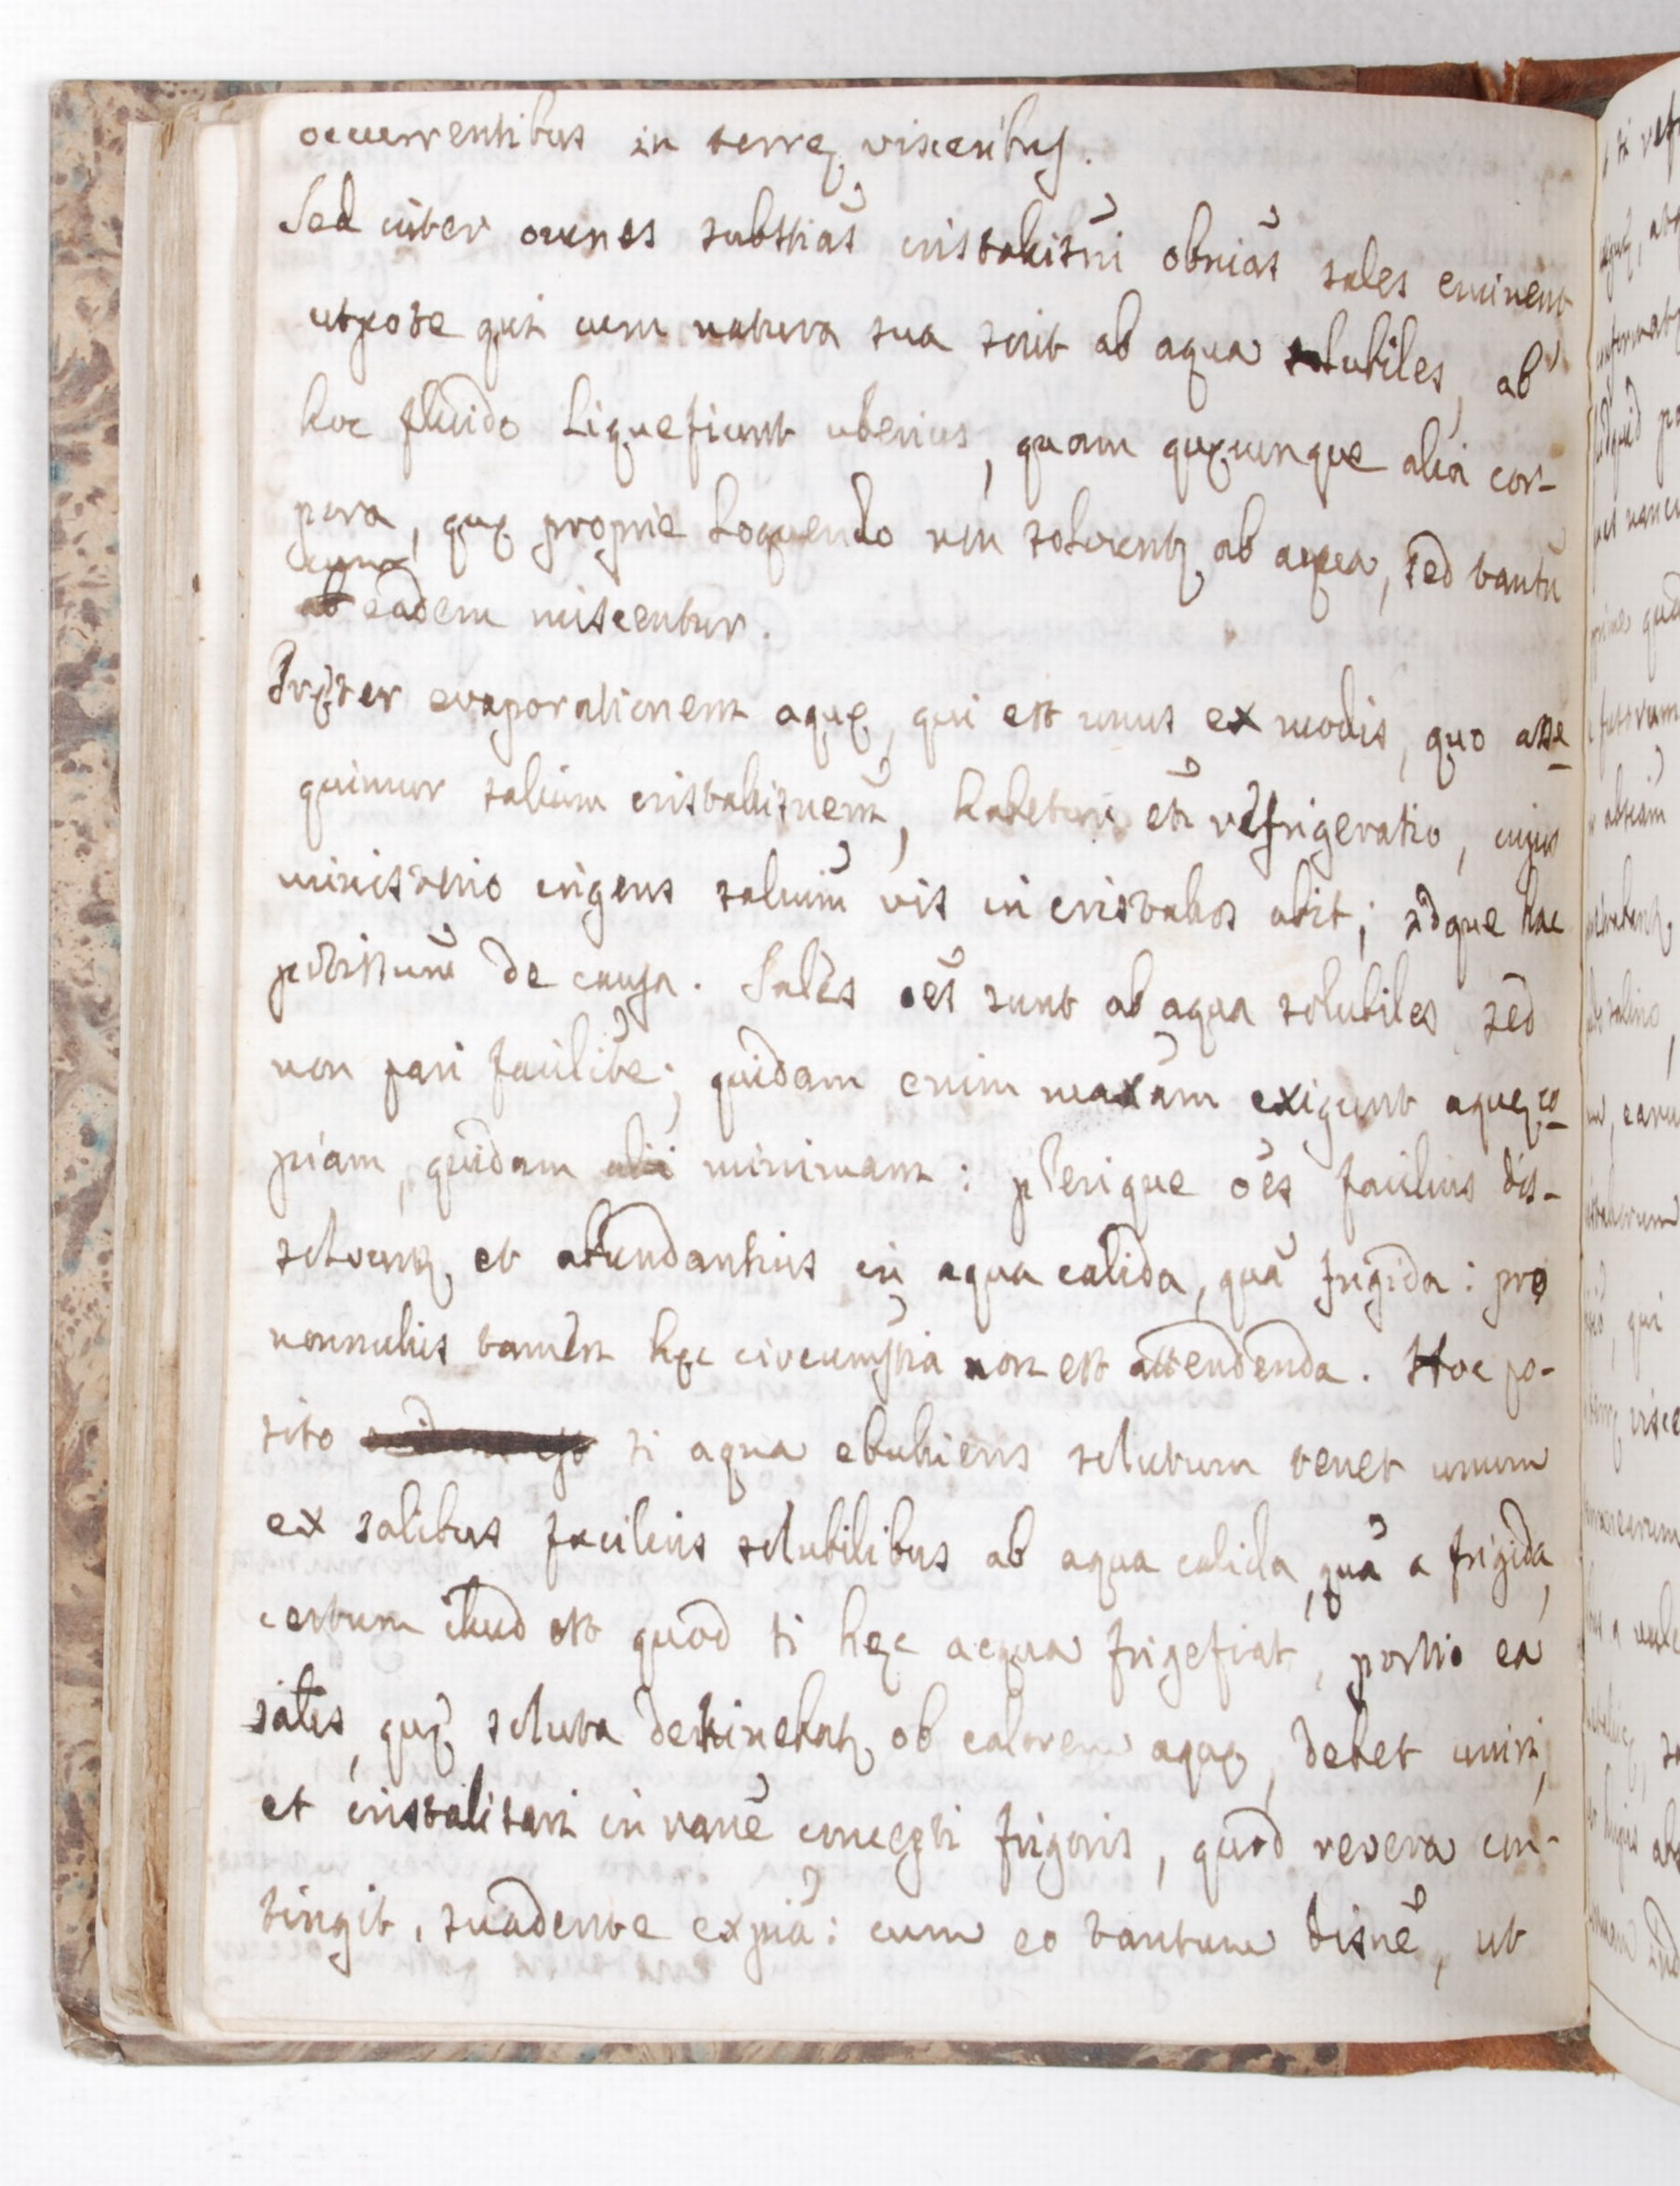 occurrentibus in terrę visceribus.
Sed inter omnes substias cristalizni obnias sales eminent
utpote qui cum natura sua sint ab aqua solubiles, ab
hoc fluido liquefiunt uberius, quam quęcunque alia cor-
pora, quę proprie loquendo non solvuntę ab aqua, sed tantū
cum
ab eadem miscentur.
Pręter evaporationem aquę, qui est unus ex modis, quo asse
quimur salium cristaliznem, habetur et refrigeratio, cujus
ministerio ingens salium vis in cristalos abit; idque hac
potissimū de causa. Sales oēs sunt ab aqua solubiles sed
non pari facilite; quidam enim maxam exigunt aquę co
piam, quidam alii minimam: plerique oēs facilius dis-
solvuntę et abundantius in aqua calida, quā frigida: pro
nonnullis tamen hęc circumstia non est attendenda. Hoc po-
sito si aqua ebulliens solutum tenet unum
ex salibus facilius solubilibus ab aqua calida, quā a frigida,
certum illud est quod si hęc acqua frigefiat, portio ea
salis, quę soluta detinebatę ob calorem aquę, debet uniri,
et cristalizari in rane concepti frigoris, quod revera con-
tingit, suadente expia: cum eo tantum disne, ut